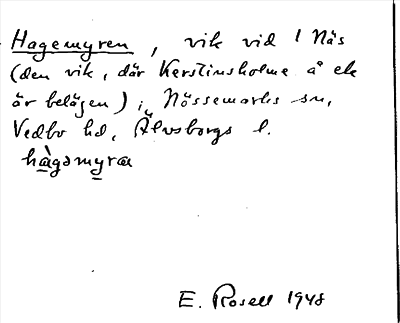 Hagemyren, vik vid 1 Näs
(den vik, där Kerstinsholme å ek
är belägen) i Nössemarks sn,
Vedbo hd, Älvsborgs l.
hàgamyra
E. Rosell 1948